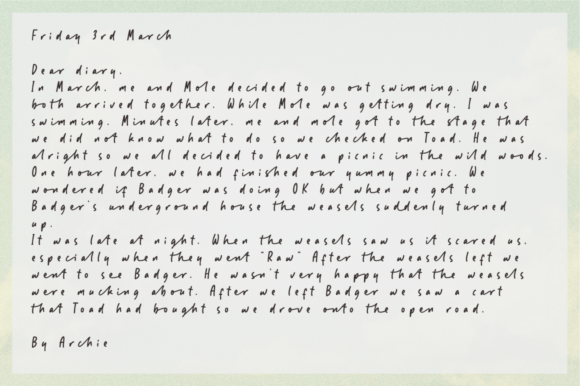 Friday 3rd March
Dear diary.
In March. me and Mole decided to go out swimming. We
both arrived together. While Mole was getting dry. I was
swimming. Minutes later. me and mole got to the stage that
we did not know what to do so we checked on Toad. He was
alright so we all decided to have a picnic in the wild woods.
One hour later. we had finished our yummy picnic. We
wondered if Badger was doing OK but when we got to
Badger's underground house the weasels suddenly turned
up.
It was late at night. When the weasels saw us it scared us.
especially when they went "Raw" After the weasels left we
went to see Badger. He wasn't very happy that the weasels
were mucking about. After we left Badger we saw a cart
that Toad had bought so we drove onto the open road.
By Archie